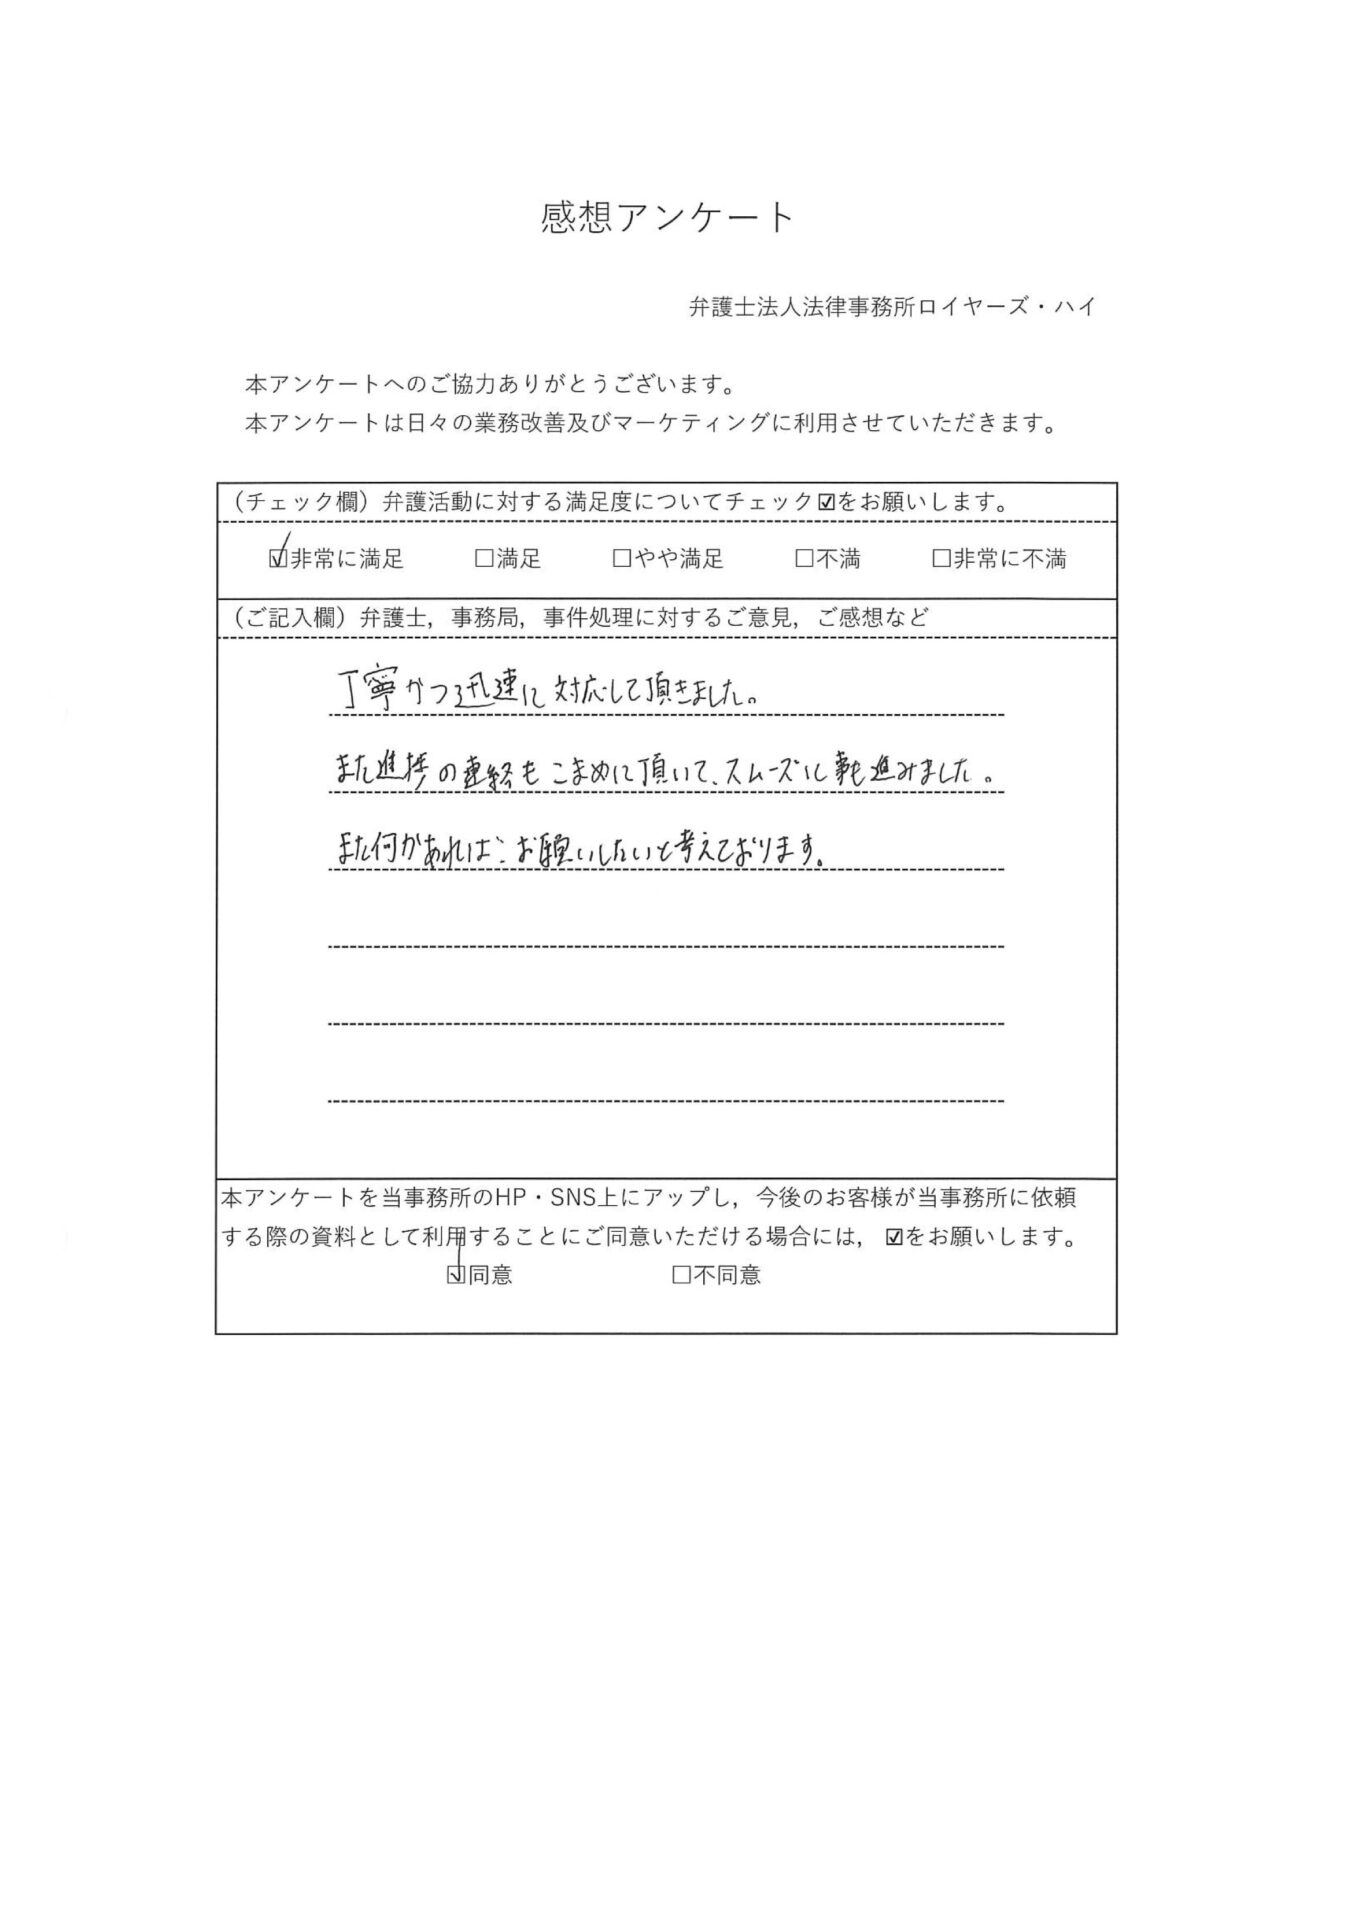 感想アンケート
弁護士法人法律事務所ロイヤーズ・ハイ
本アンケートへのご協力ありがとうございます。
本アンケートは日々の業務改善及びマーケティングに利用させていただきます。
（チェック欄）弁護活動に対する満足度についてチェック☑をお願いします。
☑非常に満足 □満足 □やや満足 □不満 □非常に不満
（ご記入欄）弁護士，事務局，事件処理に対するご意見，ご感想など
丁寧かつ迅速に対応して頂きました。
また進捗の連絡もこまめに頂いて、スムーズに事も進みました。
また何かあればお願いしたいと考えております。
本アンケートを当事務所のHP・SNS上にアップし，今後のお客様が当事務所に依頼
する際の資料として利用することにご同意いただける場合には，☑をお願いします。
☑同意 □不同意